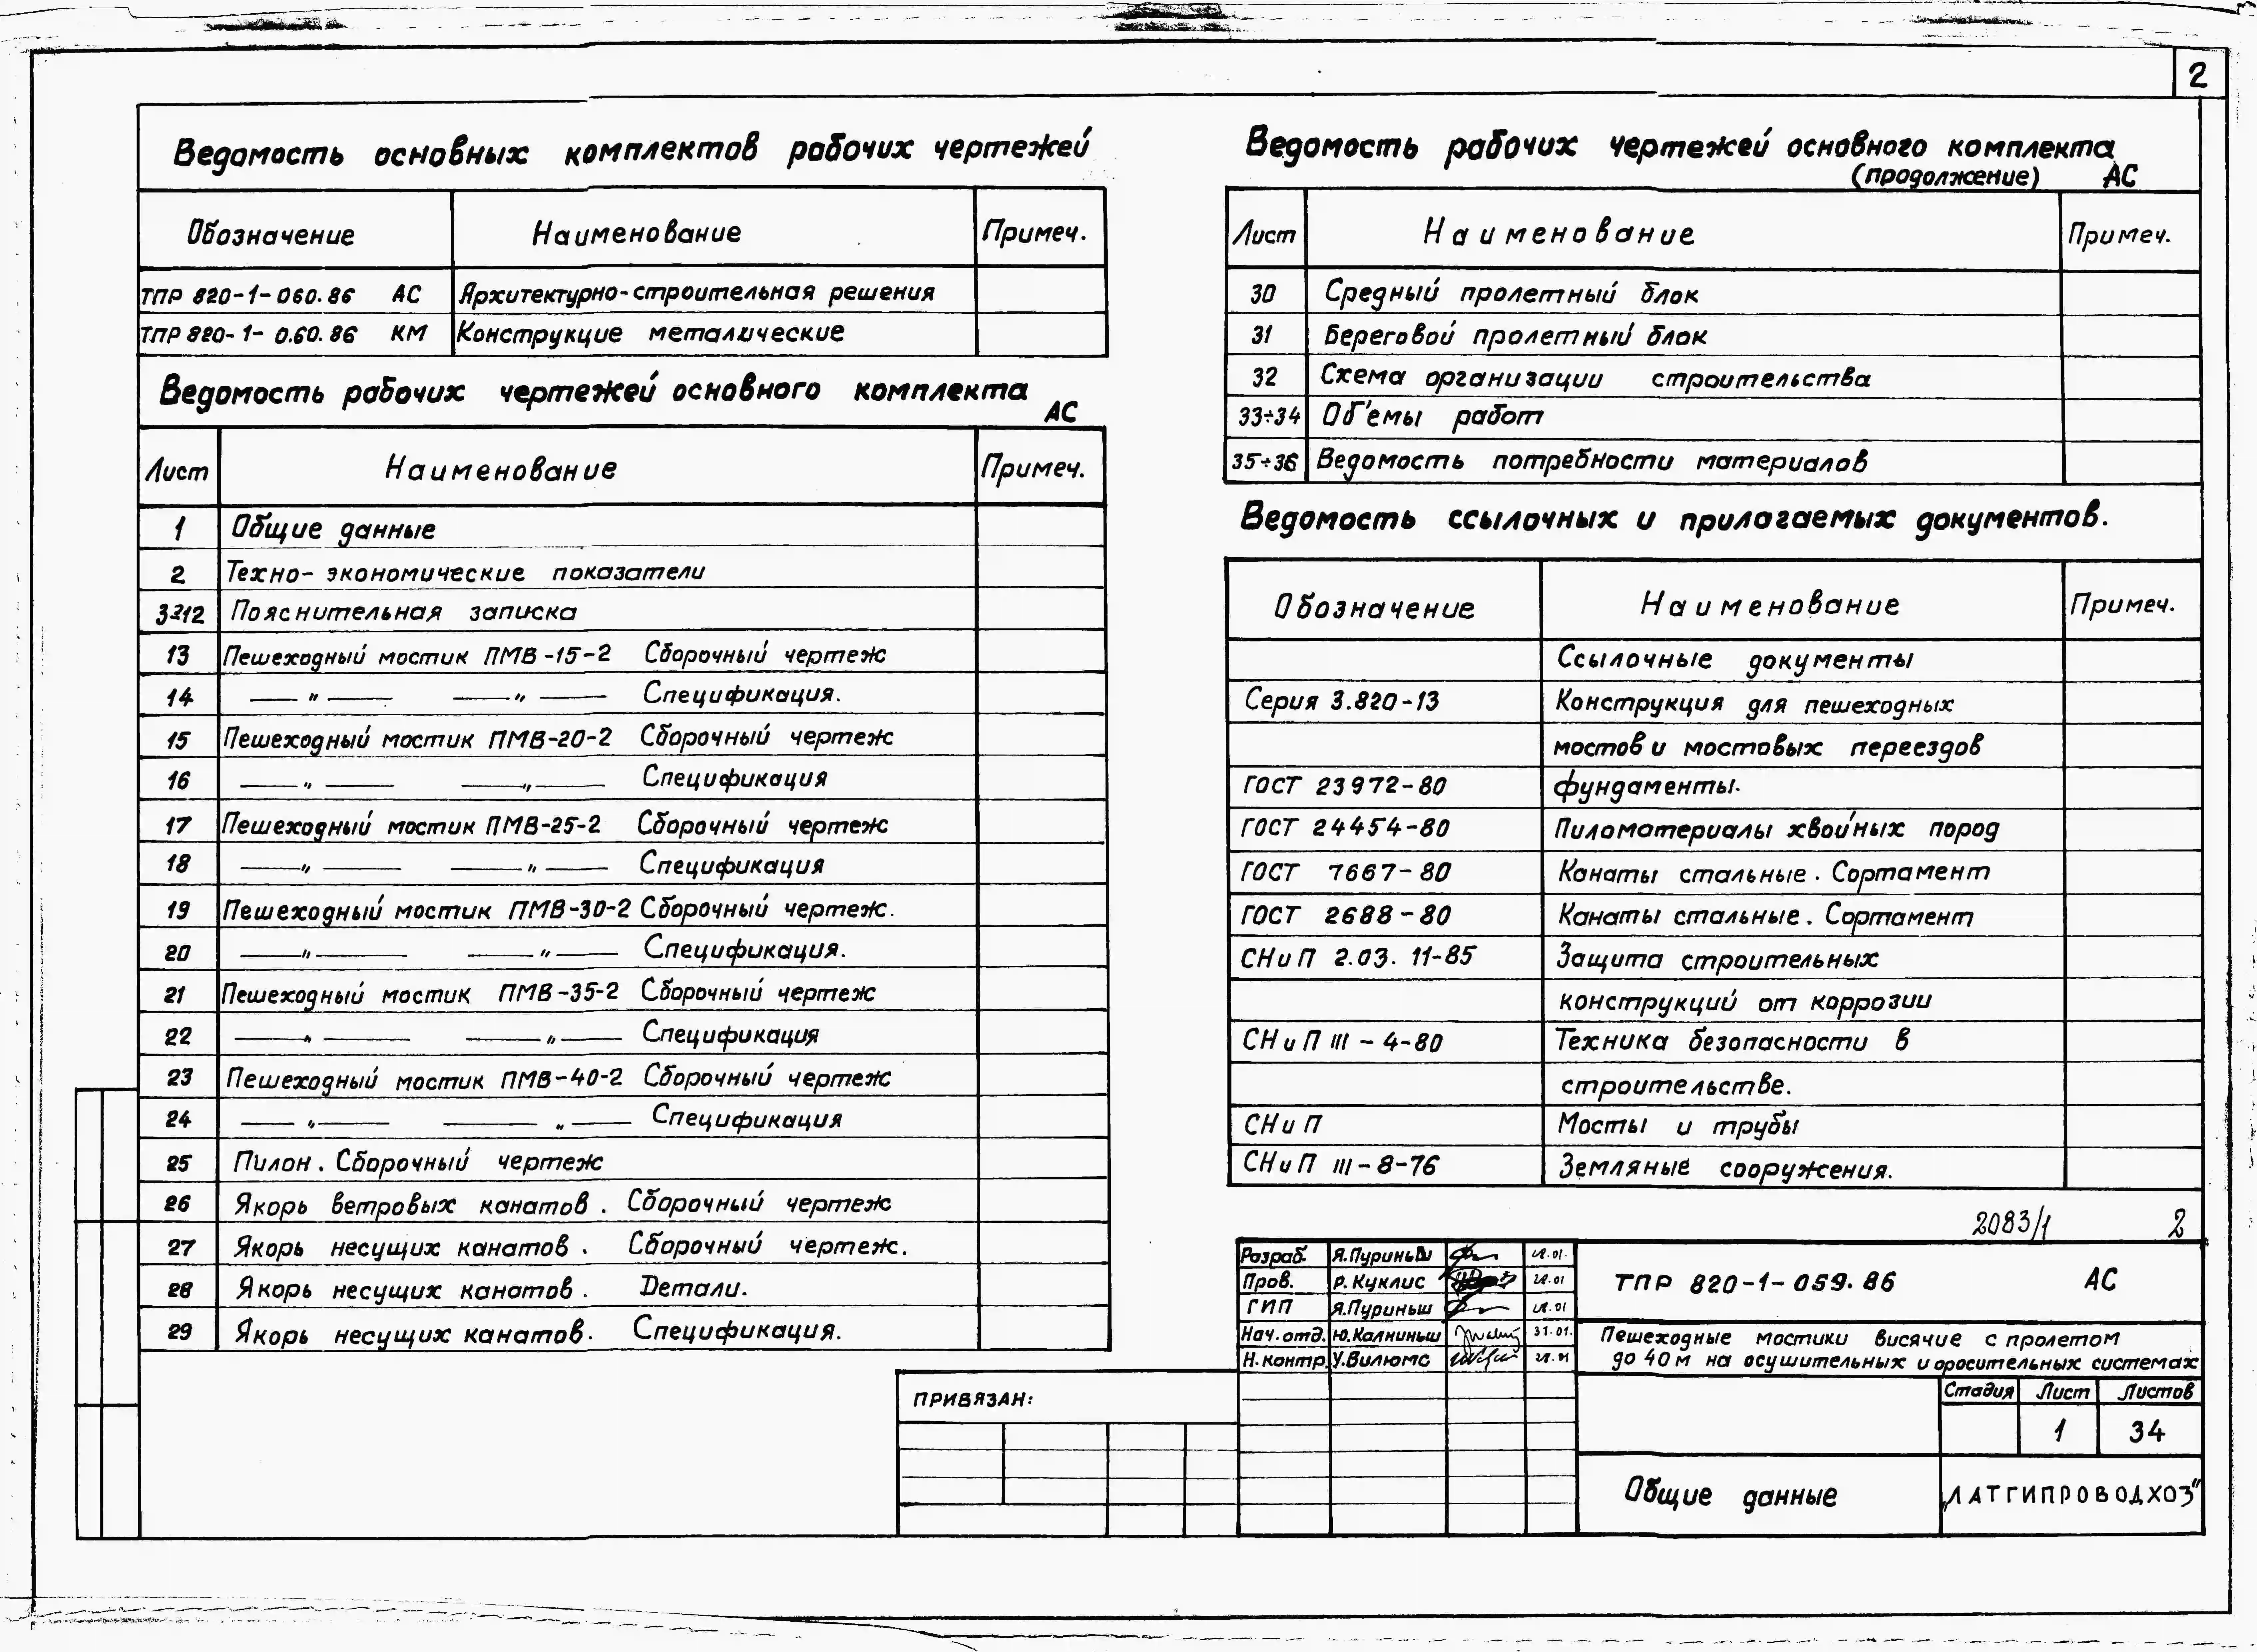 2
Ведомость основных комплектов рабочих чертежей
Обозначение Наименование Примеч.
ТПР 820-1-060.86 АС Архитектурно-строительная решения
ТПР 820-1-0.60.86 КМ Конструкцие металические
Ведомость рабочих чертежей основного комплекта
АС
Лист Наименование Примеч.
1 Общие данные
2 Техно-экономические показатели
3÷12 Пояснительная записка
13 Пешеходный мостик ПМВ-15-2 Сборочный чертеж
14 — " — — " — Спецификация.
15 Пешеходный мостик ПМВ-20-2 Сборочный чертеж
16 — " — — " — Спецификация
17 Пешеходный мостик ПМВ-25-2 Сборочный чертеж
18 — " — — " — Спецификация
19 Пешеходный мостик ПМВ-30-2 Сборочный чертеж.
20 — " — — " — Спецификация.
21 Пешеходный мостик ПМВ-35-2 Сборочный чертеж
22 — " — — " — Спецификация
23 Пешеходный мостик ПМВ-40-2 Сборочный чертеж
24 — " — — " — Спецификация
25 Пилон. Сборочный чертеж
26 Якорь ветровых канатов. Сборочный чертеж
27 Якорь несущих канатов. Сборочный чертеж.
28 Якорь несущих канатов. Детали.
29 Якорь несущих канатов. Спецификация.
Ведомость рабочих чертежей основного комплекта
(продолжение) АС
Лист Наименование Примеч.
30 Средный пролетный блок
31 Береговой пролетный блок
32 Схема организации строительства
33÷34 Об'емы работ
35÷36 Ведомость потребности материалов
Ведомость ссылочных и прилагаемых документов.
Обозначение Наименование Примеч.
Ссылочные документы
Серия 3.820-13 Конструкция для пешеходных
мостов и мостовых переездов
ГОСТ 23972-80 фундаменты.
ГОСТ 24454-80 Пиломатериалы хвойных пород
ГОСТ 7667-80 Канаты стальные. Сортамент
ГОСТ 2688-80 Канаты стальные. Сортамент
СНиП 2.03.11-85 Защита строительных
конструкций от коррозии
СНиП III-4-80 Техника безопасности в
строительстве.
СНиП Мосты и трубы
СНиП III-8-76 Земляные сооружения.
2083/1 2
Разраб. Я.Пуриньш
Пров. Р.Куклис
ГИП Я.Пуриньш
Нач.отд. Ю.Калниньш 31.01.
Н.контр. У.Вилюмс
ТПР 820-1-059.86 АС
Пешеходные мостики висячие с пролетом
до 40м на осушительных и оросительных системах
Стадия Лист Листов
1 34
Общие данные
„ЛАТГИПРОВОДХОЗ"
ПРИВЯЗАН: